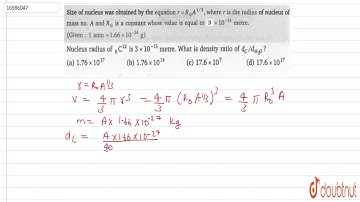 16986047
Size of nucleus was obtained by the equation r = R₀A^{1/3}, where r is the radius of nucleus of
mass no. A and R₀ is a constant whose value is equal to 3 × 10⁻¹⁵
metre.
(Given : 1 amu = 1.66 × 10⁻²⁴ g)
Nucleus radius of ₆C¹² is 3 × 10⁻¹⁵ metre. What is density ratio of d_C/d_{H₂O}?
(a) 1.76 × 10¹⁷ (b) 1.76 × 10¹⁴ (c) 17.6 × 10⁷ (d) 17.6 × 10¹⁷
r = R₀A^{1/3}
V = 4/3 π r³ = 4/3 π (R₀ A^{1/3})³ = 4/3 π R₀³ A
m = A × 1.66 × 10⁻²⁷ kg
d_C = A × 1.66 × 10⁻²⁷
doubtnut